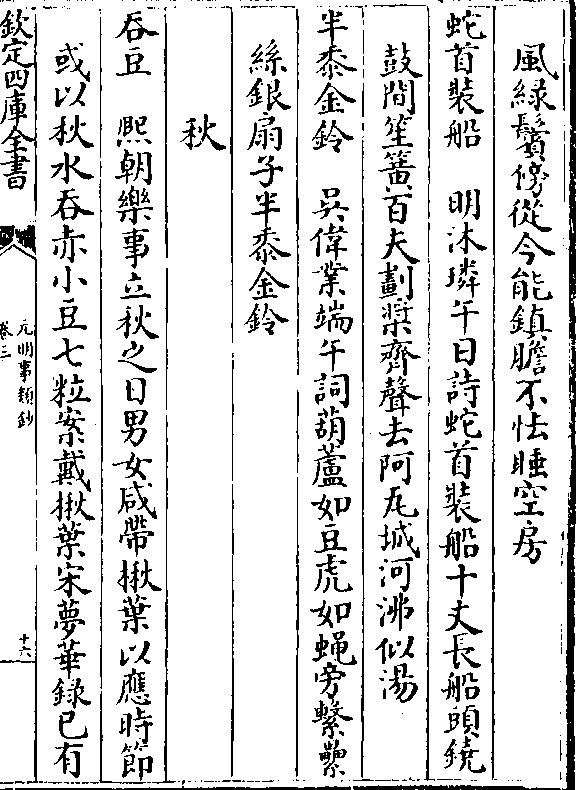 風綠鬢傍從今能鎮膽不怯睡空房
蛇首裝船　明沐璘午日詩蛇首裝船十丈長船頭鐃
鼓間笙簧百夫劃槳齊聲去阿瓦城河沸似湯
半黍金鈴　吳偉業端午詞葫蘆如豆虎如蠅旁繫纍
絲銀扇子半黍金鈴
秋
吞豆　熙朝樂事立秋之日男女咸帶楸葉以應時節
或以秋水吞赤小豆七粒案戴楸葉宋夢華錄已有
欽定四庫全書
元明事類鈔
卷三
十六